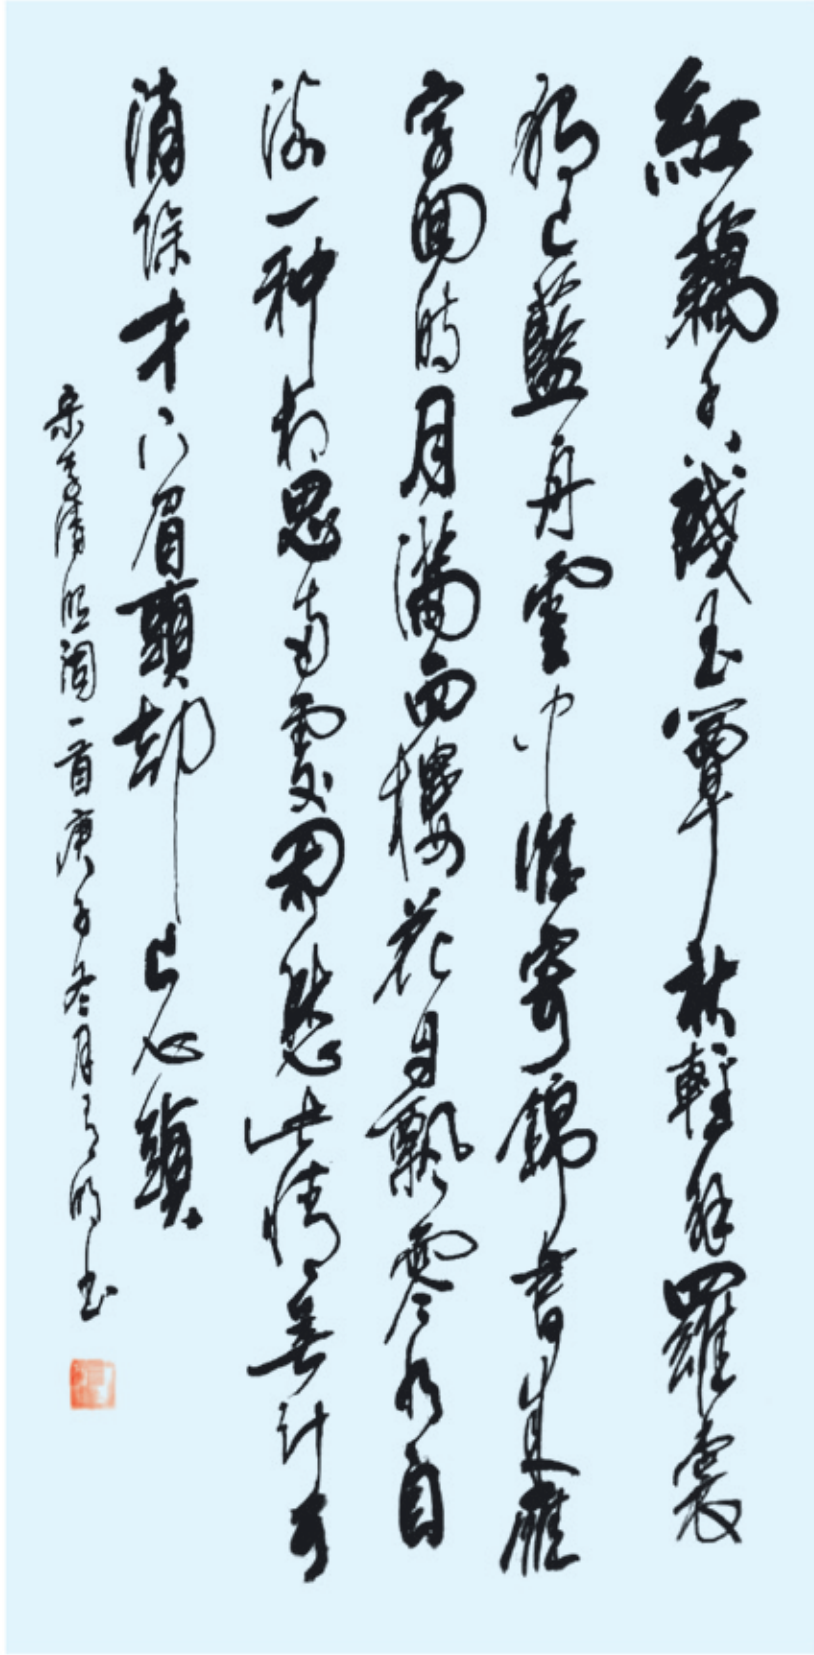 紅藕香殘玉簟秋輕解羅裳
獨上藍舟雲中誰寄錦書來雁
字回時月滿西樓花自飄零水自
流一种相思兩處閒愁此情無計可
消除才下眉頭却上心頭
宋李清照词一首庚子冬月明书